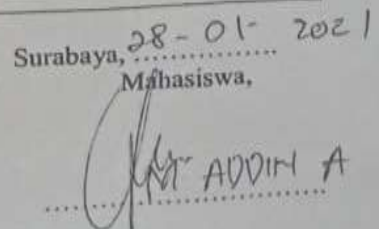 Surabaya, 28-01-2021
Mahasiswa,
ADDIN A